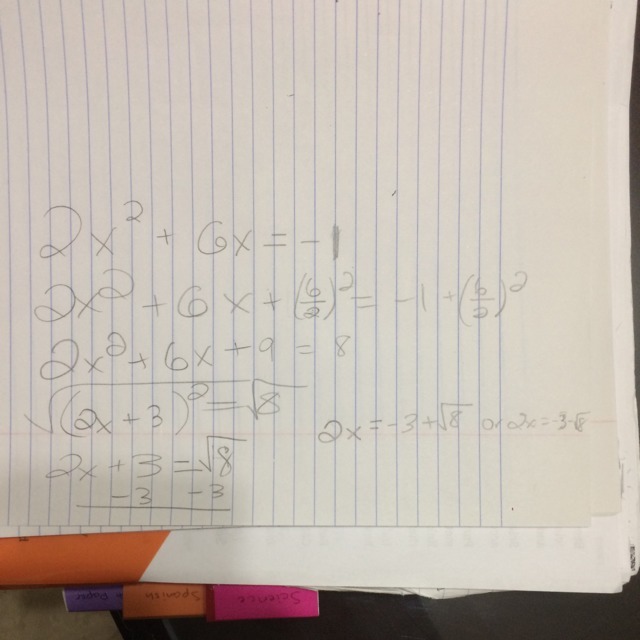 2x² + 6x = -1
2x² + 6x + (6/2)² = -1 + (6/2)²
2x² + 6x + 9 = 8
√(2x + 3)² = √8
2x + 3 = √8
-3 -3
2x = -3 + √8 or 2x = -3-√8
Paper
Spanish
Science